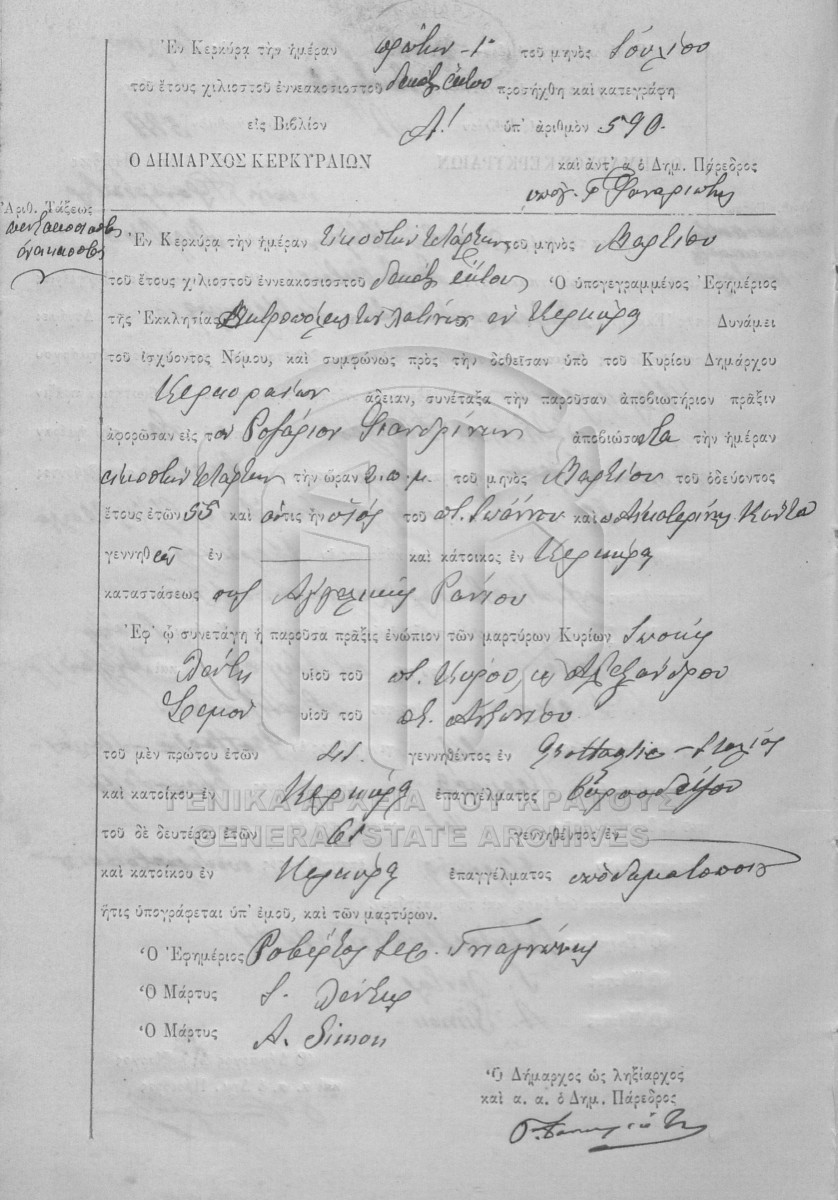 Ἐν Κερκύρᾳ τὴν ἡμέραν πρώτην - 1ην τοῦ μηνὸς Ἰουλίου
τοῦ ἔτους χιλιοστοῦ ἐννεακοσιοστοῦ δεκάτου ἕκτου προσήχθη καὶ κατεγράφη
εἰς Βιβλίον Α! ὑπ' ἀριθμὸν 590.
Ο ΔΗΜΑΡΧΟΣ ΚΕΡΚΥΡΑΙΩΝ
καὶ ἀντ' α ὁ Δημ. Πάρεδρος
Ἀριθ. Τάξεως
πεντακοσιοστὸς
ἐνενηκοστὸς
Ἐν Κερκύρᾳ τὴν ἡμέραν εἰκοστὴν τετάρτην τοῦ μηνὸς Μαρτίου
τοῦ ἔτους χιλιοστοῦ ἐννεακοσιοστοῦ δεκάτου ἕκτου Ὁ ὑπογεγραμμένος Ἐφημέριος
τῆς Ἐκκλησίας Μητροπόλεως τῶν Λατίνων ἐν Κερκύρᾳ Δυνάμει
τοῦ ἰσχύοντος Νόμου, καὶ συμφώνως πρὸς τὴν δοθεῖσαν ὑπὸ τοῦ Κυρίου Δημάρχου
Κερκυραίων ἄδειαν, συνέταξα τὴν παροῦσαν ἀποβιωτήριον πρᾶξιν
ἀφορῶσαν εἰς τὸν Ροζάριον ἀποβιώσαντα τὴν ἡμέραν
εἰκοστὴν τετάρτην τὴν ὥραν 2.π.μ. τοῦ μηνὸς Μαρτίου τοῦ ὁδεύοντος
ἔτους ἐτῶν 55 καὶ ὅστις ἦν υἱὸς τοῦ ποτ. Ἰωάννου καὶ Αἰκατερίνης Κόντα
γεννηθεὶς ἐν ——— καὶ κάτοικος ἐν Κερκύρᾳ
καταστάσεως συζ Ἀγγελικῆς Ρανίου
Ἐφ' ᾧ συνετάγη ἡ παροῦσα πρᾶξις ἐνώπιον τῶν μαρτύρων Κυρίων Ἰωσὴφ
Λέντζη υἱοῦ τοῦ ποτ. Κύρου, καὶ Ἀλεξάνδρου
Σιμὸν υἱοῦ τοῦ ποτ. Ἀντωνίου
τοῦ μὲν πρώτου ἐτῶν 41 γεννηθέντος ἐν Grottaglie - Ἰταλίας
καὶ κατοίκου ἐν Κερκύρᾳ ἐπαγγέλματος βυρσοδέψου
τοῦ δὲ δευτέρου ἐτῶν 61 γεννηθέντος ἐν
καὶ κατοίκου ἐν Κερκύρᾳ ἐπαγγέλματος ὑποδηματοποιοῦ
ἥτις ὑπογράφεται ὑπ' ἐμοῦ, καὶ τῶν μαρτύρων.
Ὁ Ἐφημέριος Ροβέρτος ἱερ.
Ὁ Μάρτυς Ι. Λέντζης
Ὁ Μάρτυς A. Simon
Ὁ Δήμαρχος ὡς ληξίαρχος
καὶ α. α. ὁ Δημ. Πάρεδρος
ΓΕΝΙΚΑ ΑΡΧΕΙΑ ΤΟΥ ΚΡΑΤΟΥΣ
GENERAL STATE ARCHIVES